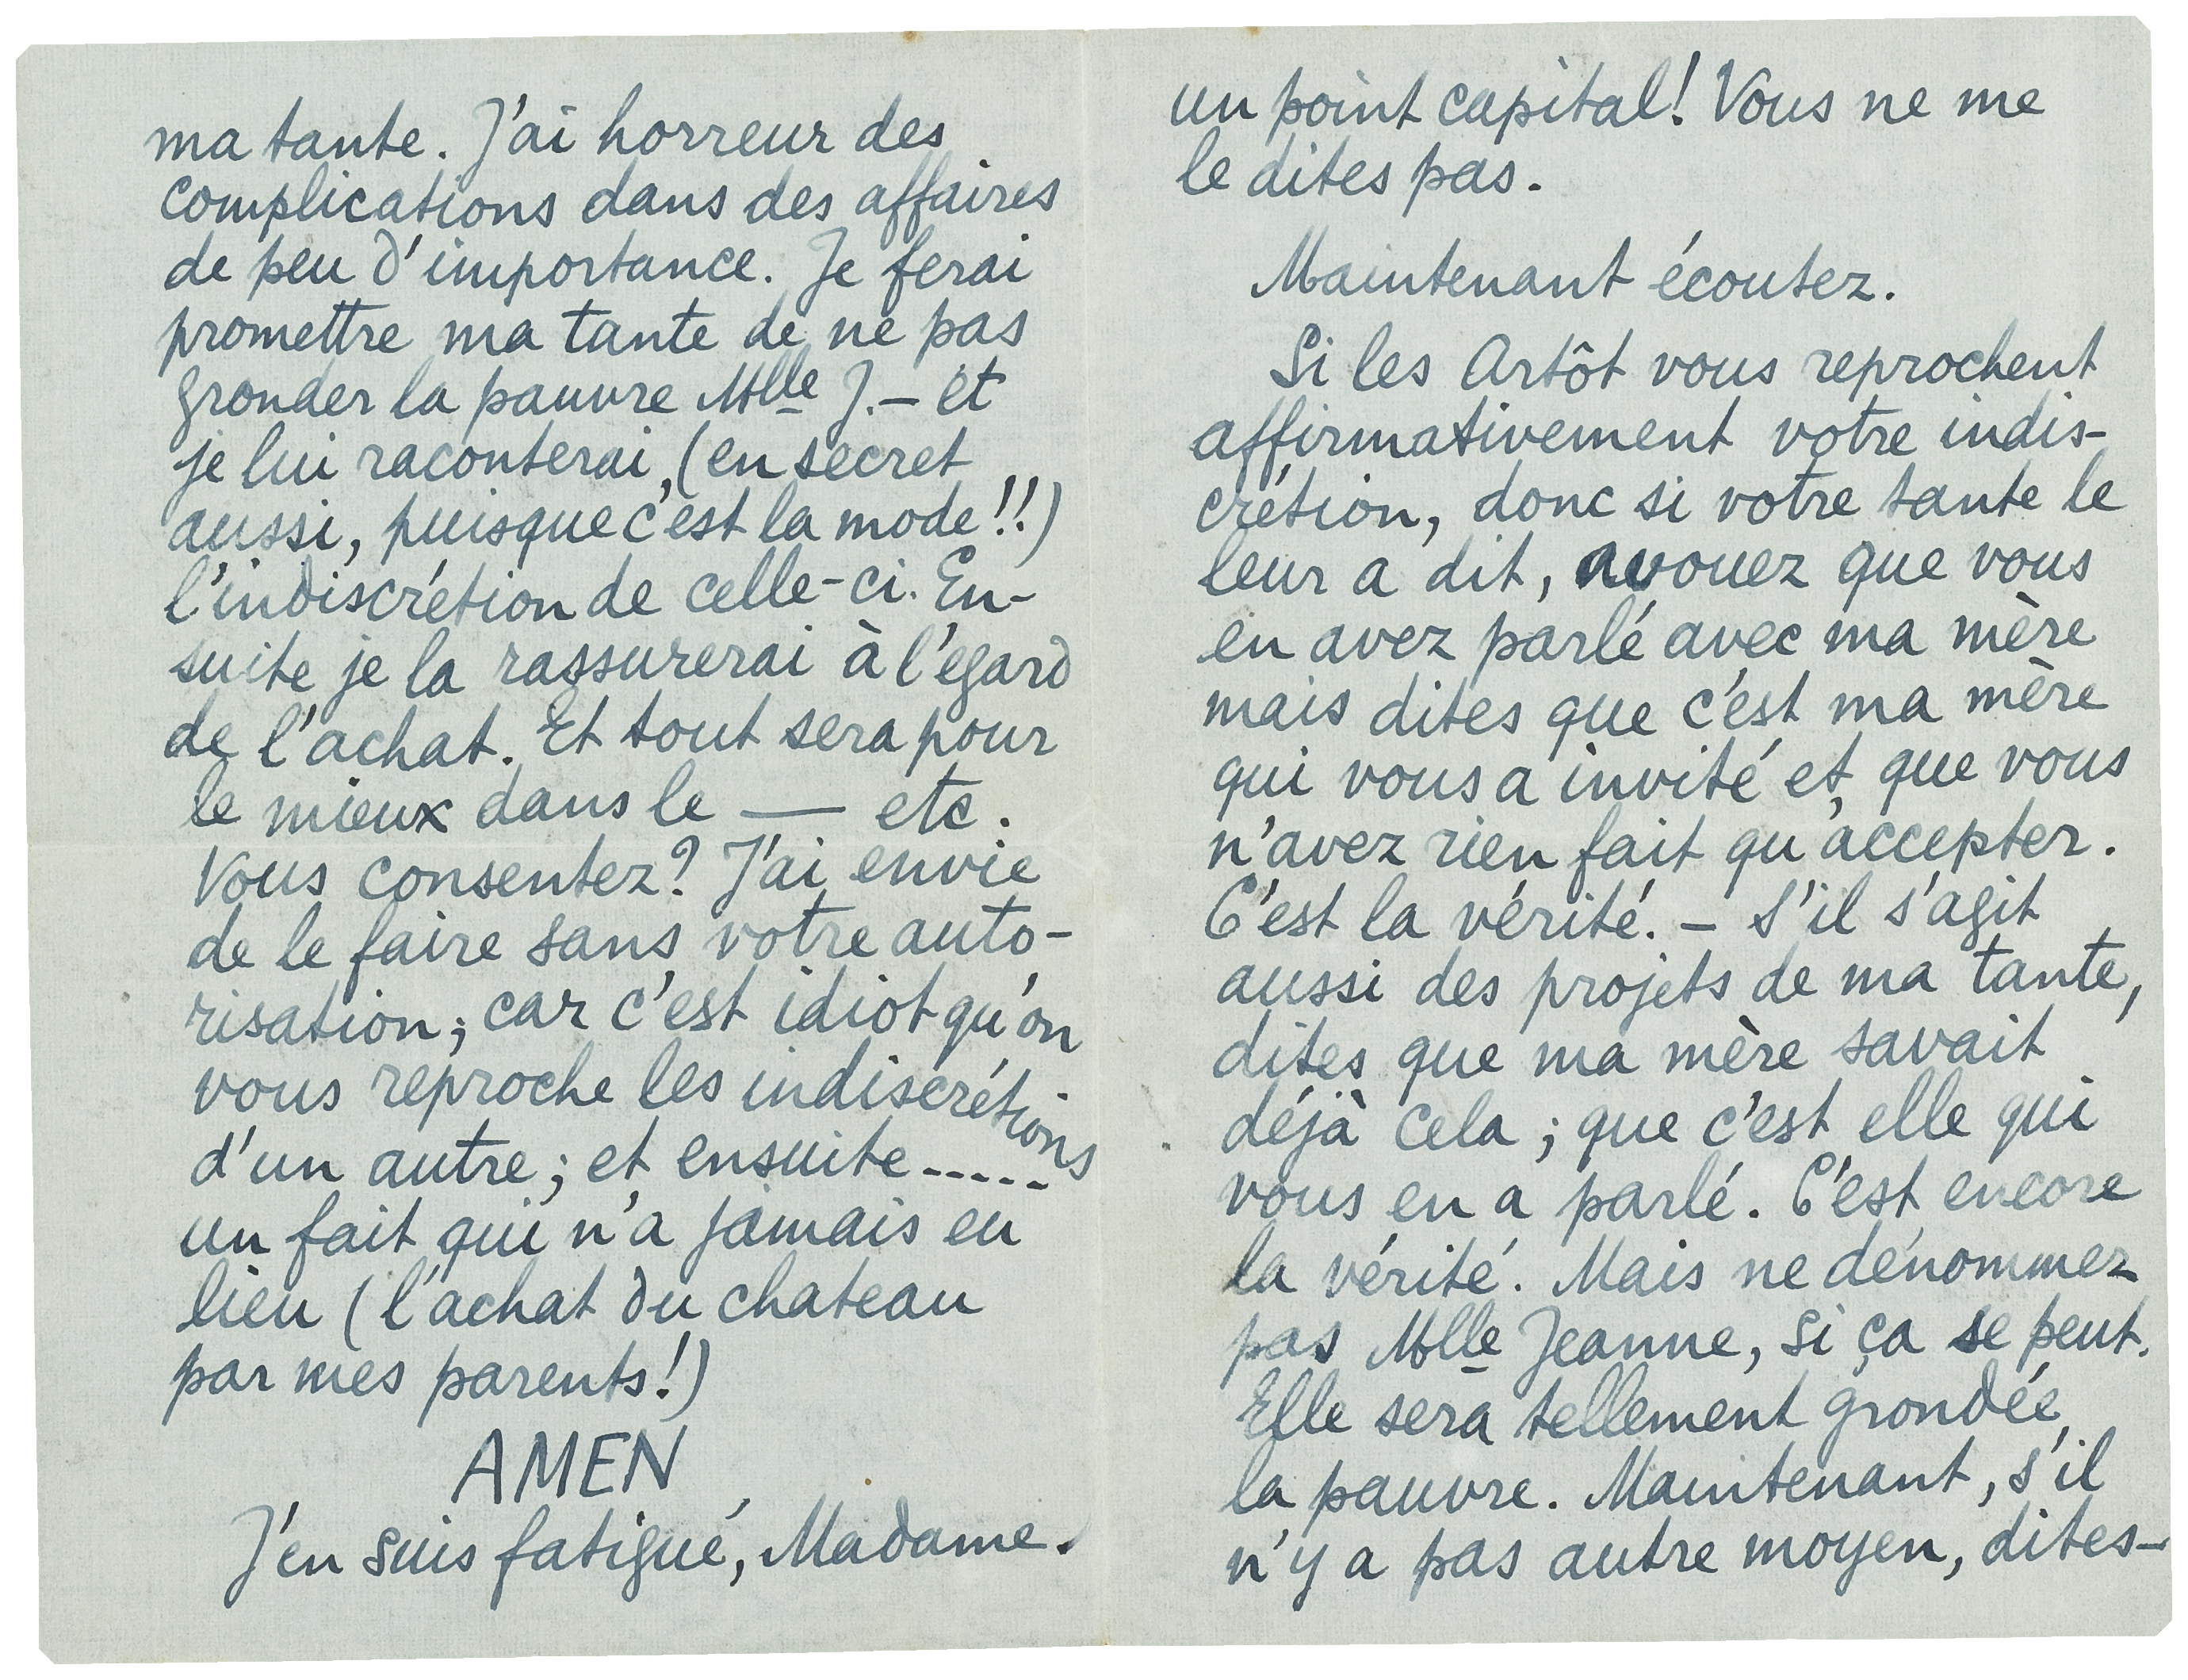 ma tante. J'ai horreur des
complications dans des affaires
de peu d'importance. Je ferai
promettre ma tante de ne pas
gronder la pauvre Mlle J. – et
je lui raconterai, (en secret
aussi, puisque c'est la mode!!)
l'indiscrétion de celle-ci. En-
suite je la rassurerai à l'egard
de l'achat. Et tout sera pour
le mieux dans le — etc.
Vous consentez? J'ai envie
de le faire sans votre auto-
risation; car c'est idiot qu'on
vous reproche les indiscrétions
d'un autre; et ensuite.....
un fait qui n'a jamais eu
lieu (l'achat du chateau
par mes parents!)
AMEN
J'en suis fatigué, Madame.
un point capital! Vous ne me
le dites pas.
Maintenant écoutez.
Si les Artôt vous reprochent
affirmativement votre indis-
crétion, donc si votre tante le
leur a dit, avouez que vous
en avez parlé avec ma mère
mais dites que c'est ma mère
qui vous a invité et que vous
n'avez rien fait qu'accepter.
C'est la vérité. – S'il s'agit
aussi des projets de ma tante,
dites que ma mère savait
déjà cela; que c'est elle qui
vous en a parlé. C'est encore
la vérité. Mais ne dénommez
pas Mlle Jeanne, si ça se peut.
Elle sera tellement grondée,
la pauvre. Maintenant, s'il
n'y a pas autre moyen, dites-